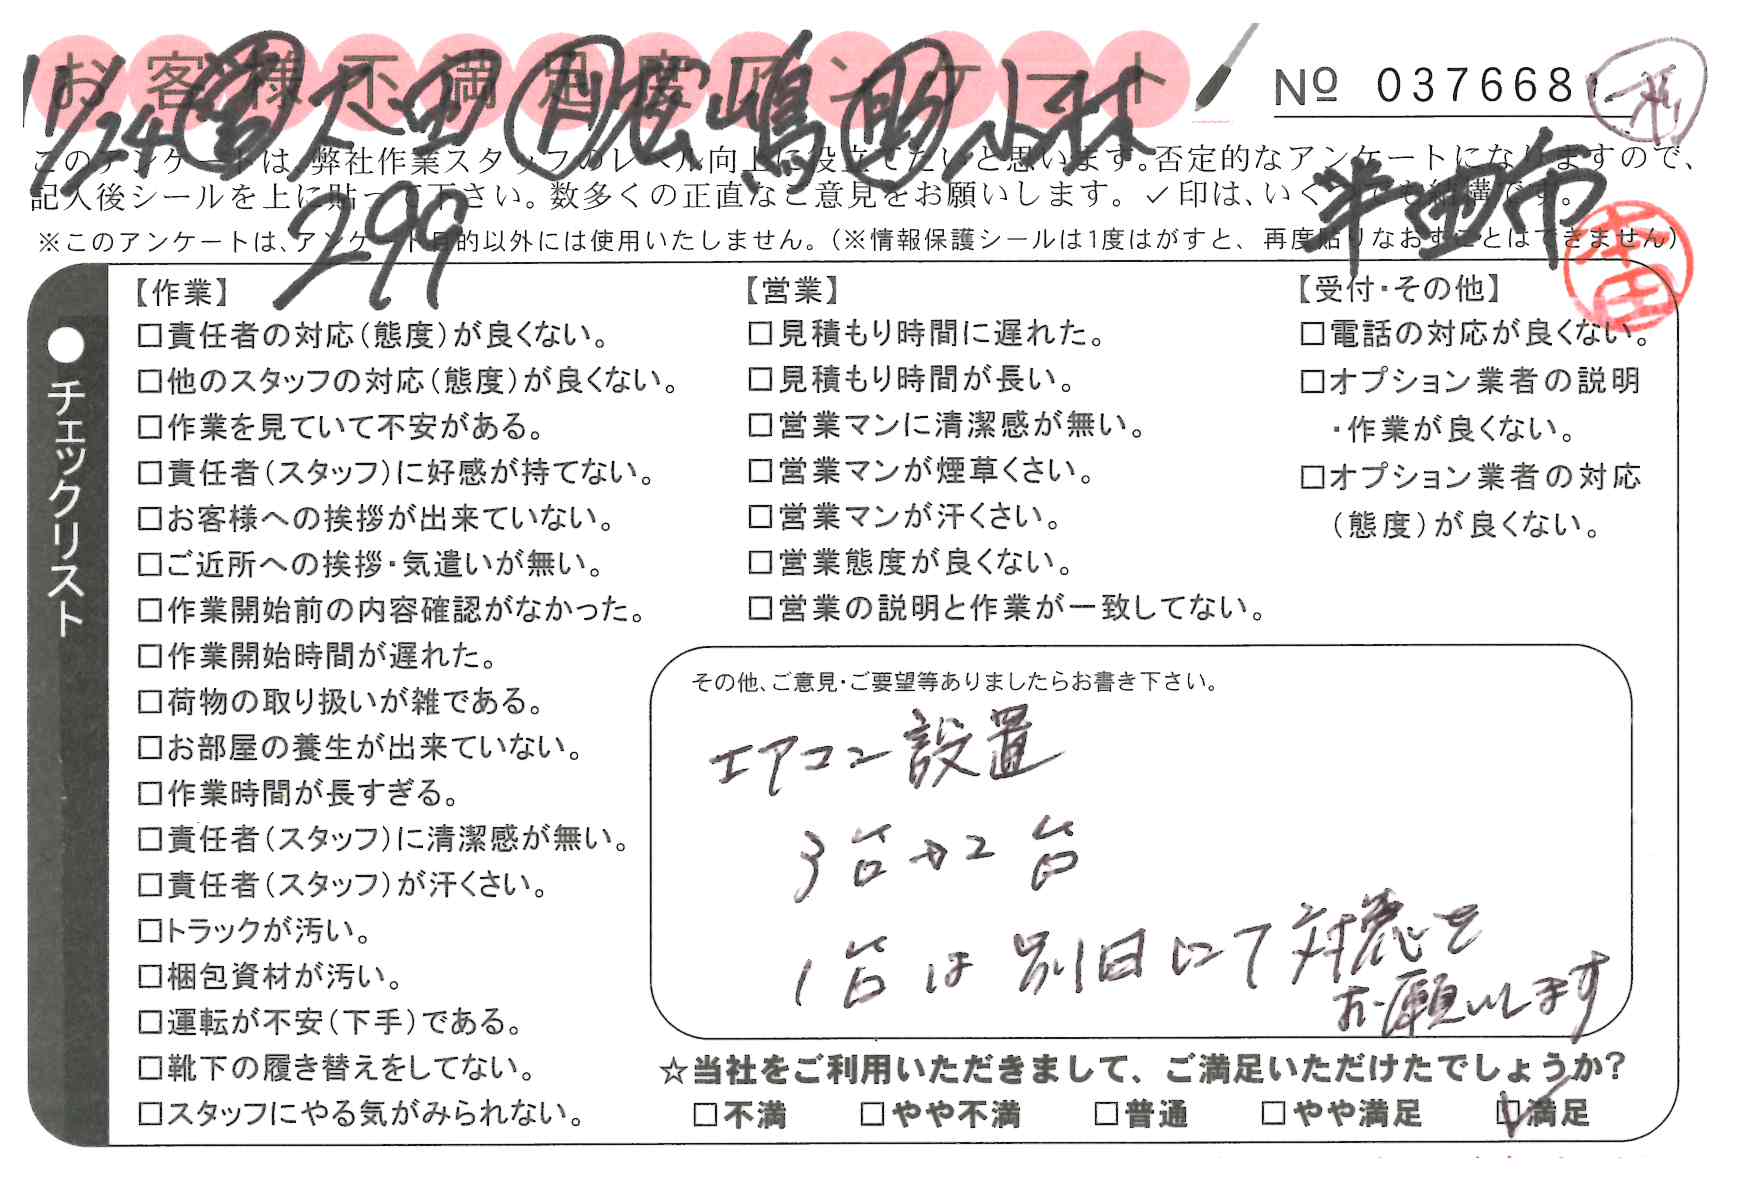 お客様不満足度アンケート
№ 0376681
11/24 営 太田 月 広嶋 助 小林
299
半田市
本田
このアンケートは、弊社作業スタッフのレベル向上に役立てたいと思います。否定的なアンケートになりますので、
記入後シールを上に貼って下さい。数多くの正直なご意見をお願いします。✓印は、いくつでも結構です。
※このアンケートは、アンケート目的以外には使用いたしません。(※情報保護シールは1度はがすと、再度貼りなおすことはできません)
●チェックリスト
【作業】
□責任者の対応(態度)が良くない。
□他のスタッフの対応(態度)が良くない。
□作業を見ていて不安がある。
□責任者(スタッフ)に好感が持てない。
□お客様への挨拶が出来ていない。
□ご近所への挨拶・気遣いが無い。
□作業開始前の内容確認がなかった。
□作業開始時間が遅れた。
□荷物の取り扱いが雑である。
□お部屋の養生が出来ていない。
□作業時間が長すぎる。
□責任者(スタッフ)に清潔感が無い。
□責任者(スタッフ)が汗くさい。
□トラックが汚い。
□梱包資材が汚い。
□運転が不安(下手)である。
□靴下の履き替えをしてない。
□スタッフにやる気がみられない。
【営業】
□見積もり時間に遅れた。
□見積もり時間が長い。
□営業マンに清潔感が無い。
□営業マンが煙草くさい。
□営業マンが汗くさい。
□営業態度が良くない。
□営業の説明と作業が一致してない。
【受付・その他】
□電話の対応が良くない。
□オプション業者の説明
・作業が良くない。
□オプション業者の対応
(態度)が良くない。
その他、ご意見・ご要望等ありましたらお書き下さい。
エアコン設置
3台→2台
1台は別日にて対応を
お願いします
☆当社をご利用いただきまして、ご満足いただけたでしょうか?
□不満 □やや不満 □普通 □やや満足 ☑満足